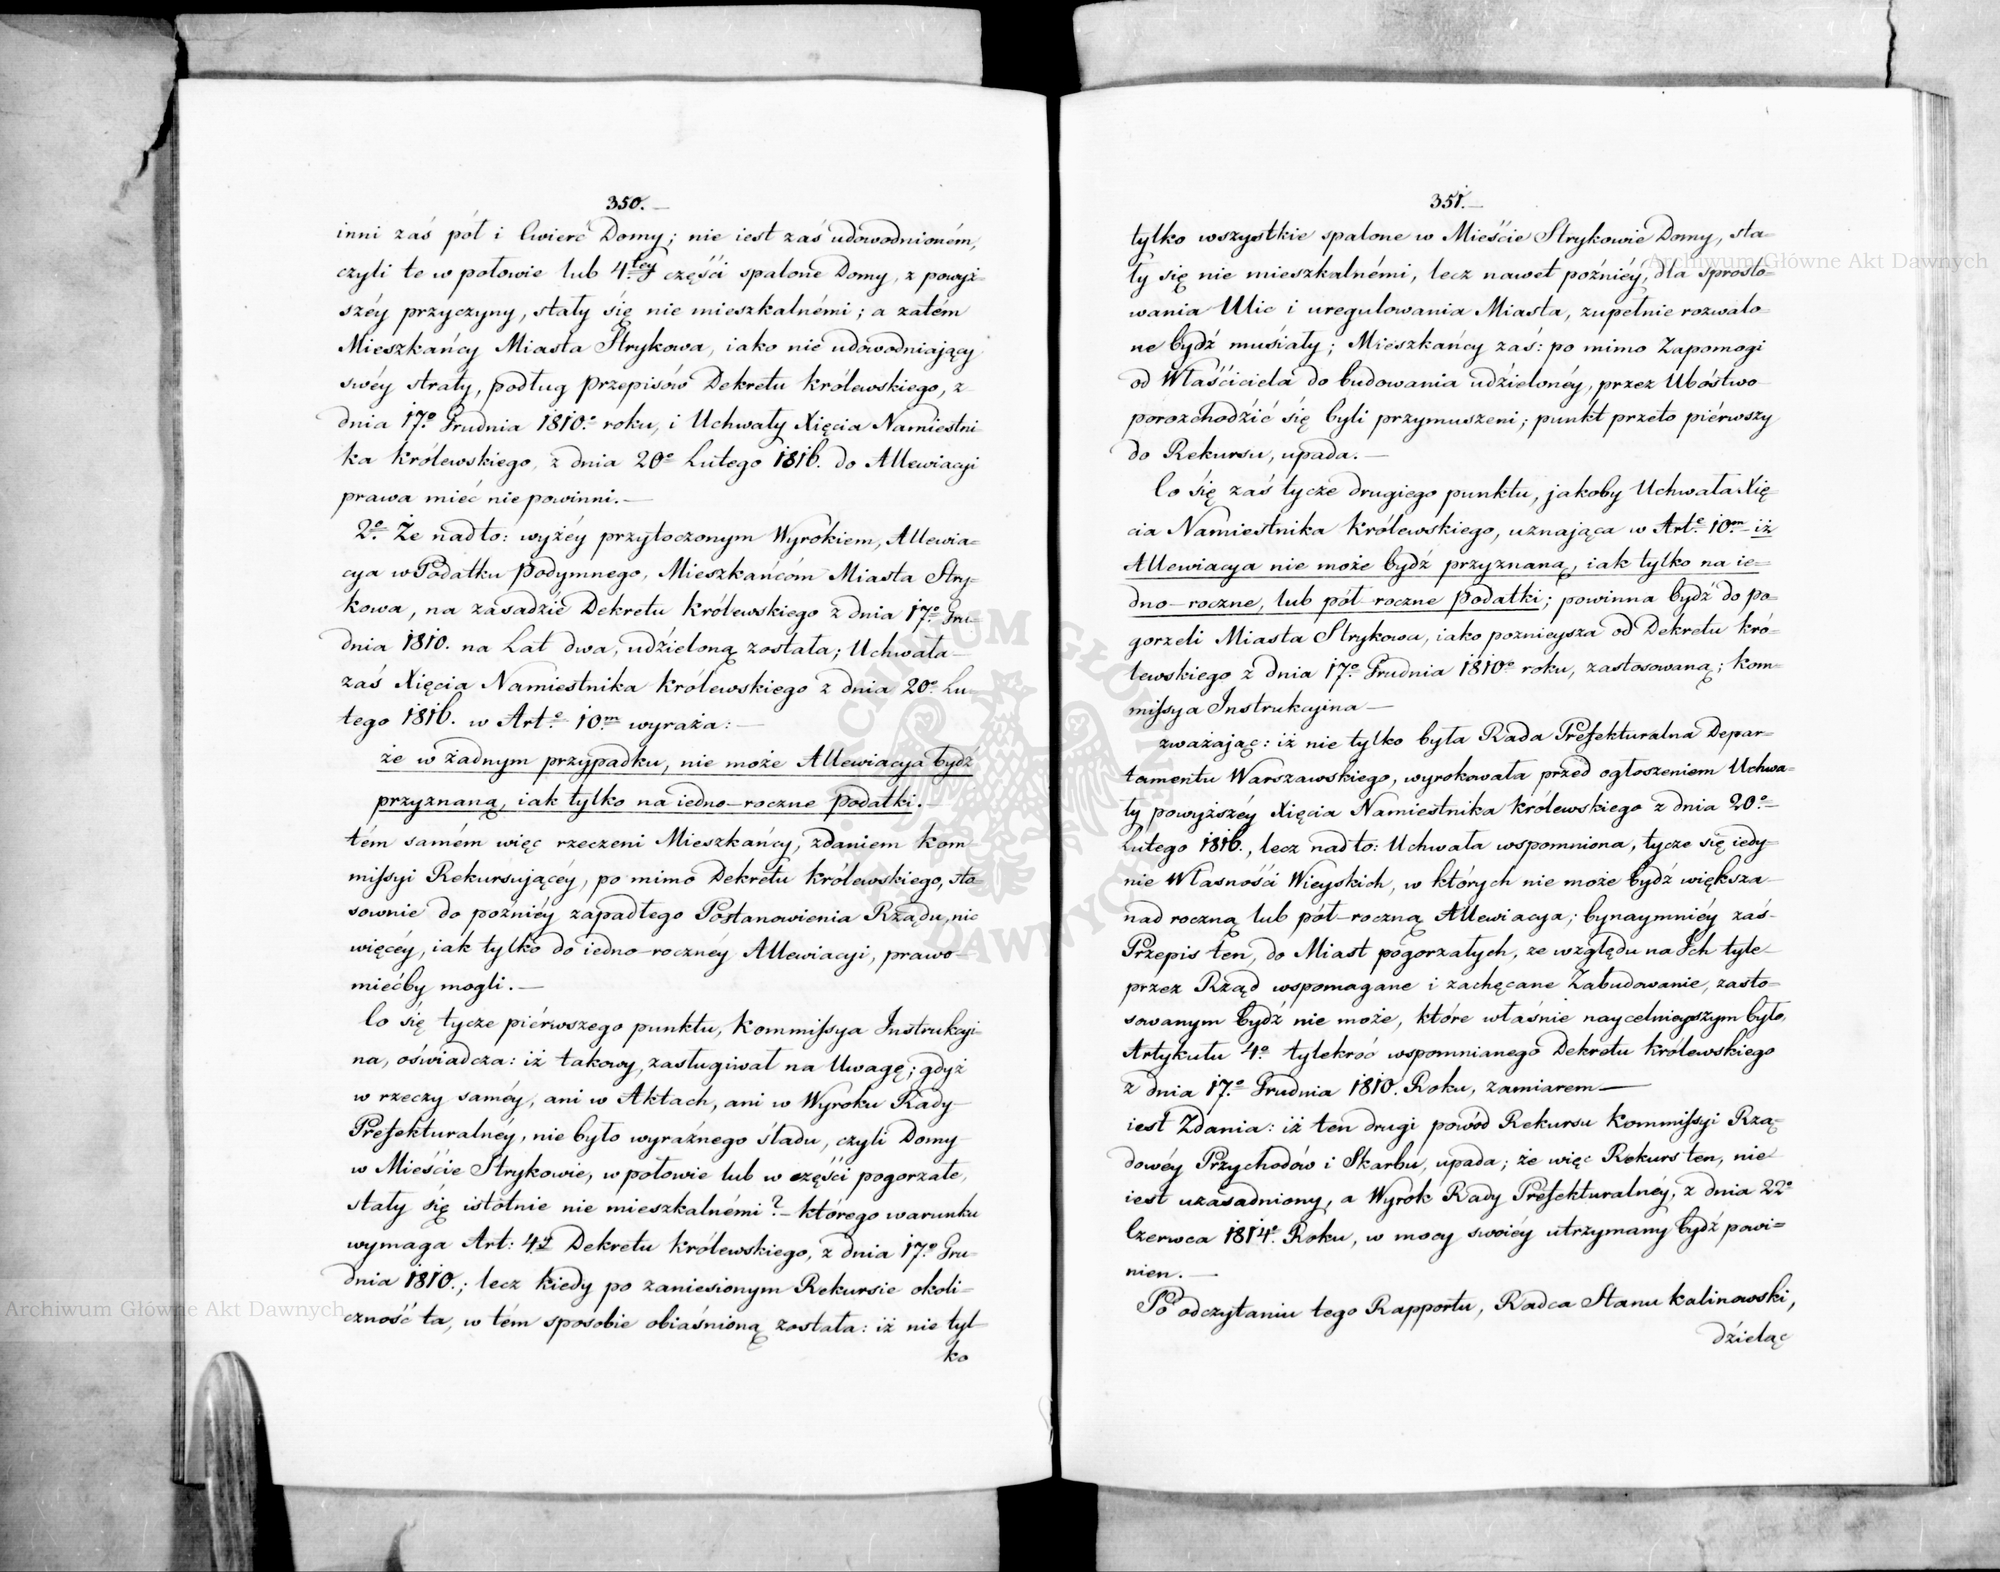 350.—
inni zaś pół i Ćwierć Domy; nie iest zaś udowodnioném,
czyli te w połowie lub 4.tey części spalone Domy, z powyż-
széy przyczyny, stały się nie mieszkalnémi; a zatém
Mieszkańcy Miasta Strykowa, iako nie udowodniaiący
swéy straty, podług Przepisów Dekretu Królewskiego, z
dnia 17.º Grudnia 1810.º roku, i Uchwały Xięcia Namiestni
ka Królewskiego, z dnia 20º Lutego 1816. do Allewiacyi
prawa mieć nie powinni.—
2º. Że nadto: wyżéy przytoczonym Wyrokiem, Allewia-
cya w Podatku Podymnego, Mieszkańcóm Miasta Stry-
kowa, na zasadzie Dekretu Królewskiego z dnia 17º Gru-
dnia 1810. na Lat dwa, udzieloną została; Uchwała
zaś Xięcia Namiestnika Królewskiego z dnia 20º Lu-
tego 1816. w Art.e 10.m wyraża:—
że w żadnym przypadku, nie może Allewiacya bydź
przyznaną, iak tylko na iedno-roczne Podatki.—
tém samém więc rzeczeni Mieszkańcy, zdaniem Kom-
missyi Rekursuiącéy, po mimo Dekretu Królewskiego, sto-
sownie do poźniéy zapadłego Postanowienia Rządu, nic
więcéy, iak tylko do iedno-roczney Allewiacyi, prawo-
miećby mogli.—
Co się tycze piérwszego punktu, Kommissya Instrukcyi-
na, oświadcza: iż takowy, zasługiwał na Uwagę; gdyż
w rzeczy saméy, ani w Aktach, ani w Wyroku Rady
Prefekturalnéy, nie było wyraźnego śladu, czyli Domy
w Mieście Strykowie, w połowie lub w części pogorzałe,
stały się istotnie nie mieszkalnémi?— którego warunku
wymaga Art: 4.ty Dekretu Królewskiego, z dnia 17.º Gru-
dnia 1810.; lecz kiedy po zaniesionym Rekursie okoli-
czność ta, w tém sposobie obiaśnioną została: iż nie tyl-
ko
351.—
tylko wszystkie spalone w Mieście Strykowie Domy, sta-
ły się nie mieszkalnémi, lecz nawet poźniéy, dla sprosto-
wania Ulic i uregulowania Miasta, zupełnie rozwalo-
ne bydź musiały; Mieszkańcy zaś: po mimo Zapomogi
od Właściciela do budowania udzielonéy, przez Ubóstwo
porozchodzić się byli przymuszeni; punkt przeto piérwszy
do Rekursu, upada.—
Co się zaś tycze drugiego punktu, jakoby Uchwała Xię-
cia Namiestnika Królewskiego, uznaiąca w Art.e 10.m iż
Allewiacya nie może bydź przyznaną, iak tylko na ie-
dno-roczne, lub pół-roczne Podatki; powinna bydź do po-
gorzeli Miasta Strykowa, iako poznieysza od Dekretu Kró-
lewskiego z dnia 17º Grudnia 1810º roku, zastosowaną; Kom-
missya Instrukcyina—
zważaiąc: iż nie tylko była Rada Prefekturalna Depar-
tamentu Warszawskiego, wyrokowała przed ogłoszeniem Uchwa-
ły powyższéy Xięcia Namiestnika Królewskiego z dnia 20.º
Lutego 1816., lecz nadto: Uchwała wspomniona, tycze się iedy-
nie Własności Wieyskich, w których nie może bydź większa
nad roczną lub pół-roczną Allewiacya; bynaymniéy zaś
Przepis ten, do Miast pogorzałych, ze względu na Ich tyle
przez Rząd wspomagane i zachęcane Zabudowanie, zasto-
sowanym bydź nie może, które właśnie naycelnieyszym było,
Artykułu 4º tylekroć wspomnianego Dekretu Królewskiego
z dnia 17.º Grudnia 1810. Roku, zamiarem—
iest Zdania: iż ten drugi powód Rekursu Kommissyi Rzą-
dowéy Przychodów i Skarbu, upada; że więc Rekurs ten, nie
iest uzasadniony, a Wyrok Rady Prefekturalnéy, z dnia 22º
Czerwca 1814º Roku, w mocy swoiéy utrzymany bydź powi-
nien.—
Po odczytaniu tego Rapportu, Radca Stanu Kalinowski,
dzieląc
Archiwum Główne Akt Dawnych
Archiwum Główne Akt Dawnych
ARCHIWUM GŁÓWNE AKT DAWNYCH